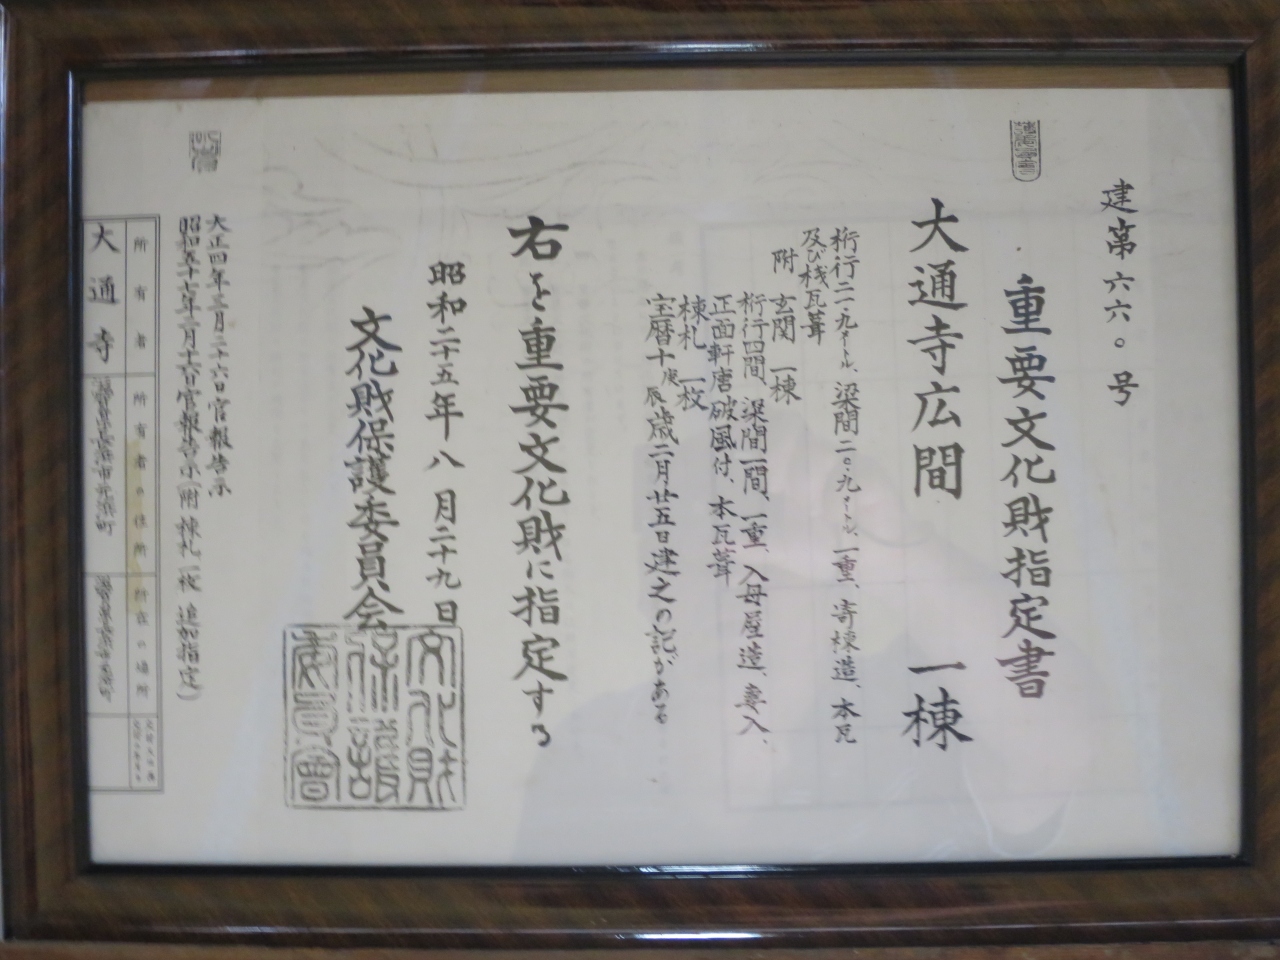 建第六六〇号
重要文化財指定書
大通寺広間 一棟
桁行二一・九メートル、梁間二〇・九メートル、一重、寄棟造、本瓦
及び桟瓦葺
附 玄関 一棟
桁行四間、梁間一間、一重、入母屋造、妻入、
正面軒唐破風付、本瓦葺
棟札 一枚
宝暦十庚辰歳二月廿五日建之の記がある
右を重要文化財に指定する
昭和二十五年八月二十九日
文化財保護委員会
文化財保護委員会
大正四年三月二十六日官報告示
官報告示(附棟札一枚 追加指定)
所有者 所有者の住所 所在の場所
大通寺 滋賀県長浜市元浜町